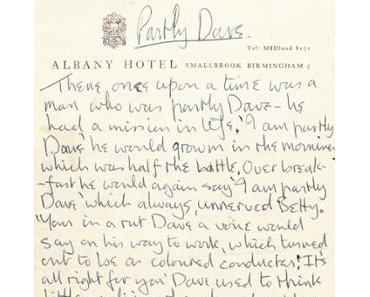 Partly Dave.
Tel: MIDland 8171
ALBANY HOTEL SMALLBROOK BIRMINGHAM 5
There once upon a time was a
man who was partly Dave - he
had a mission in life. 'I am partly
Dave' he would growm in the morning
which was half the battle. Over break-
-fast he would again say 'I am partly
Dave' which always unnerved Betty.
'Your in a rut Dave' a voice would
say on his way to work, which turned
out to be a coloured conductor. 'It's
all right for you' Dave used to think